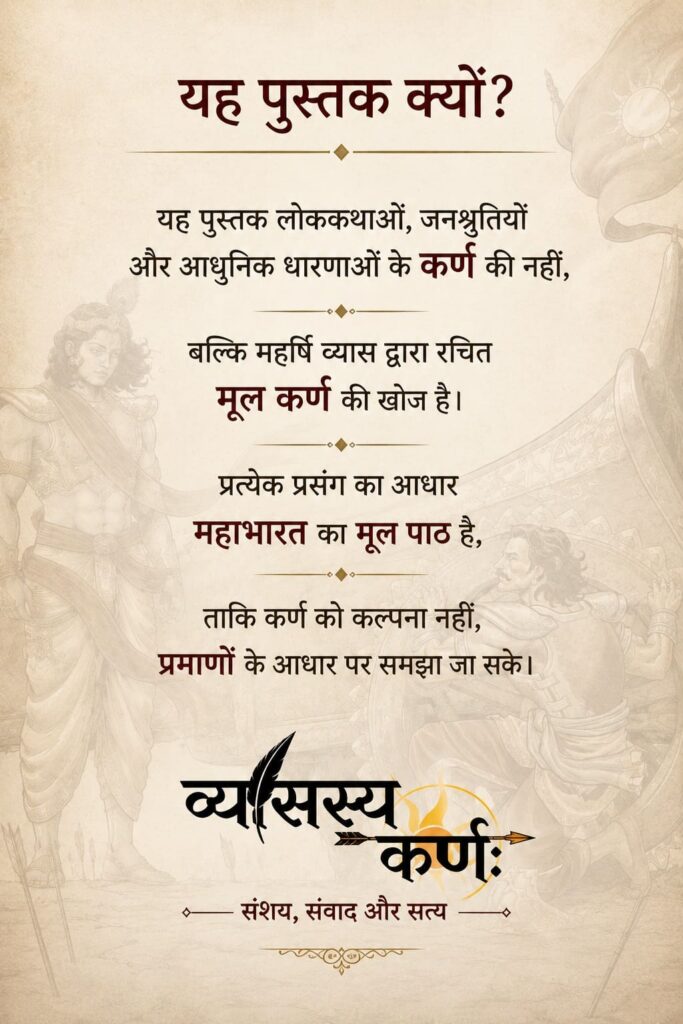 यह पुस्तक क्यों?
यह पुस्तक लोककथाओं, जनश्रुतियों
और आधुनिक धारणाओं के कर्ण की नहीं,
बल्कि महर्षि व्यास द्वारा रचित
मूल कर्ण की खोज है।
प्रत्येक प्रसंग का आधार
महाभारत का मूल पाठ है,
ताकि कर्ण को कल्पना नहीं,
प्रमाणों के आधार पर समझा जा सके।
व्यासस्य
कर्णः
संशय, संवाद और सत्य